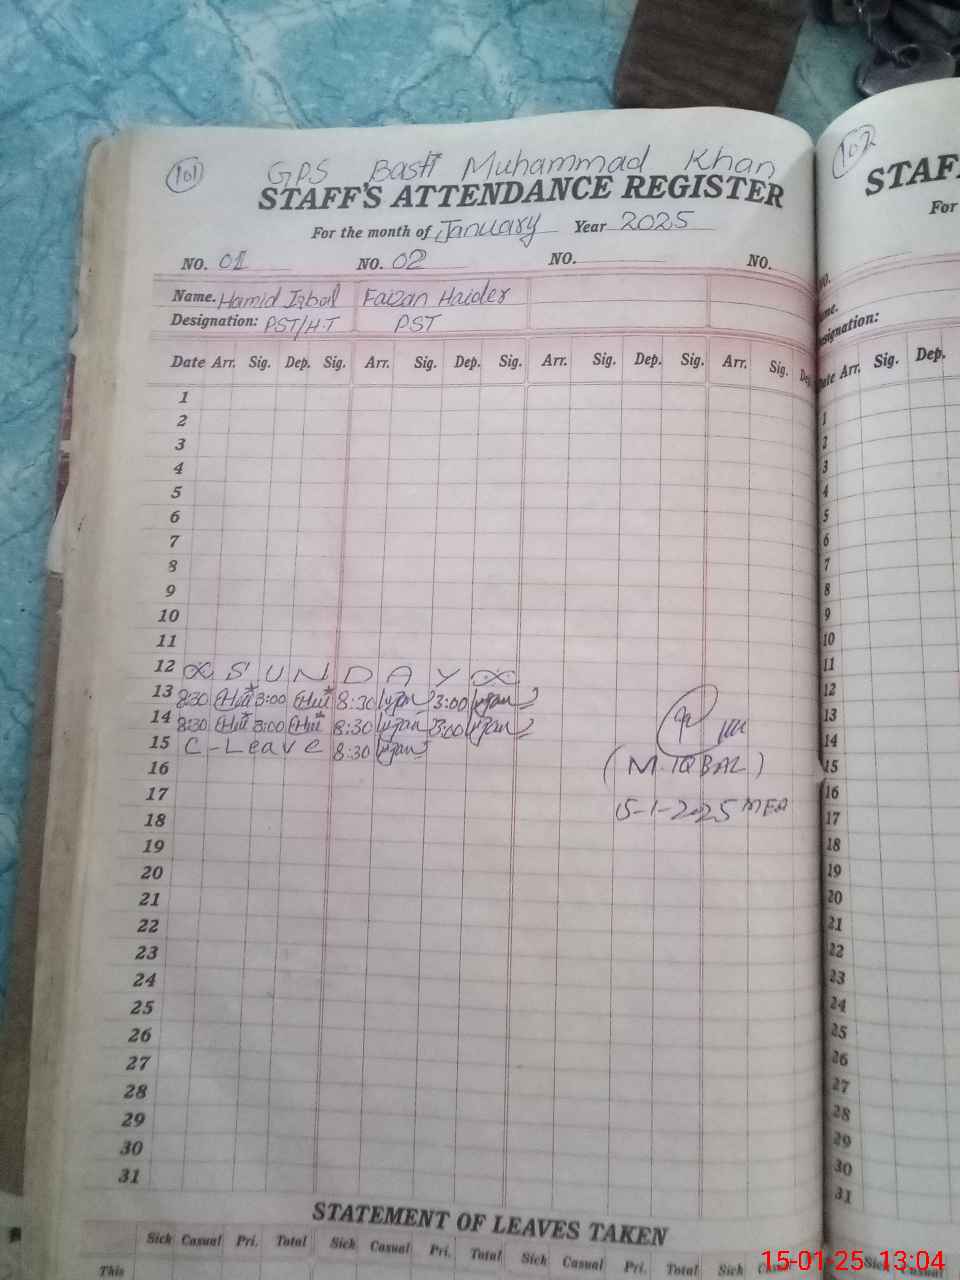 101 GPS Basti Muhammad Khan
STAFF'S ATTENDANCE REGISTER
For the month of January Year 2025
NO. 01 NO. 02 NO. NO.
Name. Hamid Iqbal Faizan Haider
Designation: PST/H.T PST
Date Arr. Sig. Dep. Sig. Arr. Sig. Dep. Sig. Arr. Sig. Dep. Sig. Arr. Sig. Dep.
1
2
3
4
5
6
7
8
9
10
11
12 SUNDAY
13 8:30 3:00 8:30 3:00
14 8:30 3:00 8:30 3:00
15 C-Leave 8:30
(M. IQBAL)
16
17
15-1-2025 MEA
18
19
20
21
22
23
24
25
26
27
28
29
30
31
STATEMENT OF LEAVES TAKEN
Sick Casual Pri. Total Sick Casual Pri. Total Sick Casual Pri. Total Sick
This
102
STAFF
For
NO.
Name.
Designation:
Date Arr. Sig. Dep.
1
2
3
4
5
6
7
8
9
10
11
12
13
14
15
16
17
18
19
20
21
22
23
24
25
26
27
28
29
30
31
Sick Casual
15-01-25 13:04